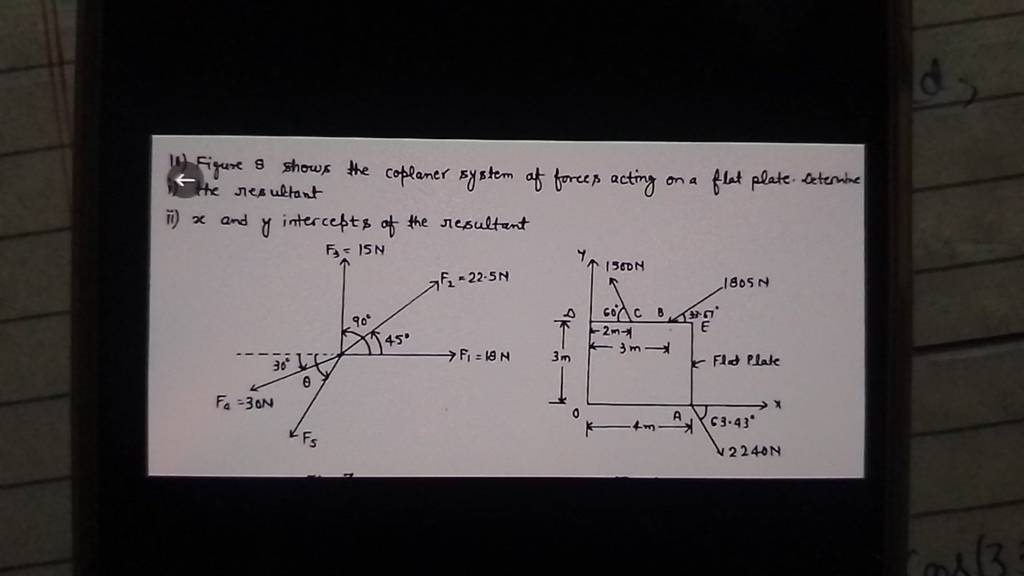 Figure 8 shows the coplaner system of forces acting on a flat plate. Determine
the resultant
ii) x and y intercepts of the resultant
F3 = 15N
F2 = 22.5N
90°
45°
F1 = 18N
30°
θ
F4 = 30N
F5
y
1500N
1805N
D
60°
C
B
E
2m
3m
3m
Flat Plate
O
A
x
4m
63.43°
2240N
d,